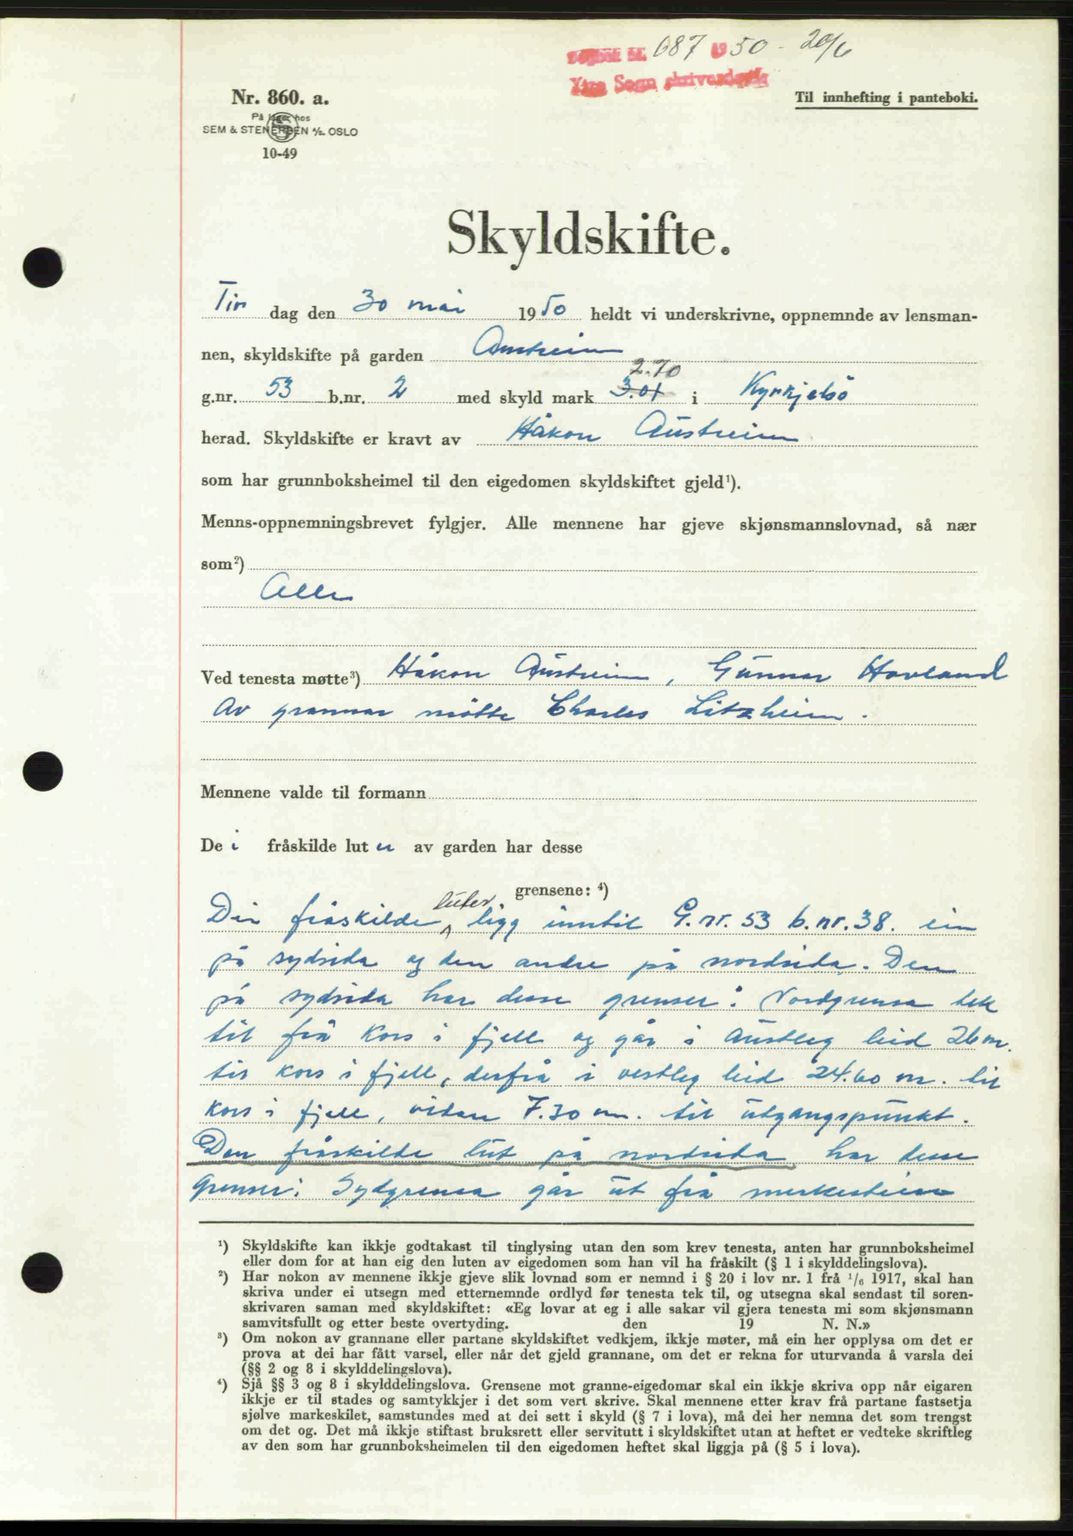 Dagbok nr. 687 1950 - 20/6
Ytre Sogn skrivardøme
Nr. 860. a.
På lager hos
SEM & STENERSEN A/S. OSLO
10-49
Til innhefting i panteboki.
Skyldskifte.
Tirs dag den 30 mai 1950 heldt vi underskrivne, oppnemnde av lensman-
nen, skyldskifte på garden Austreim
2.70
g.nr. 53 b.nr. 2 med skyld mark 3.01 i Kyrkjebö
herad. Skyldskifte er kravt av Håkon Austreim
som har grunnboksheimel til den eigedomen skyldskiftet gjeld¹).
Menns-oppnemningsbrevet fylgjer. Alle mennene har gjeve skjønsmannslovnad, så nær
som²)
Alle
Ved tenesta møtte³) Håkon Austreim, Gunnar Hovland
Av grannar mötte Charles Litzheim.
Mennene valde til formann
De i fråskilde lut er av garden har desse
grensene: ⁴)
luter
Dei fråskilde ligg inntil G.nr. 53 b.nr. 38. ein
på sydsida og den andre på nordsida. Den
på sydsida har desse grenser: Nordgrensa tek
til frå kors i fjell og går i austleg leid 26 m.
til kors i fjell, derfrå i vestleg leid 24.60 m. til
kors i fjell, vidare 7.30 m. til utgangspunkt.
Den fråskilde lut på nordsida har desse
grenser: Sydgrensa går ut frå merkestein
¹) Skyldskifte kan ikkje godtakast til tinglysing utan den som krev tenesta, anten har grunnboksheimel
eller dom for at han eig den luten av eigedomen som han vil ha fråskilt (§ 1 i skylddelingslova).
²) Har nokon av mennene ikkje gjeve slik lovnad som er nemnd i § 20 i lov nr. 1 frå ¹/₆ 1917, skal han
skriva under ei utsegn med etternemnde ordlyd før tenesta tek til, og utsegna skal sendast til soren-
skrivaren saman med skyldskiftet: «Eg lovar at eg i alle sakar vil gjera tenesta mi som skjønsmann
samvitsfullt og etter beste overtyding. den 19 N. N.»
³) Om nokon av grannane eller partane skyldskiftet vedkjem, ikkje møter, må ein her opplysa om det er
prova at dei har fått varsel, eller når det gjeld grannane, om det er rekna for uturvanda å varsla dei
(§§ 2 og 8 i skylddelingslova).
⁴) Sjå §§ 3 og 8 i skylddelingslova. Grensene mot granne-eigedomar skal ein ikkje skriva opp når eigaren
ikkje er til stades og samtykkjer i det som vert skrive. Skal mennene etter krav frå partane fastsetja
sjølve markeskilet, samstundes med at dei sett i skyld (§ 7 i lova), må dei her nemna det som trengst
om det og. Det må ikkje stiftast bruksrett eller servitutt i skyldskiftet utan at heftet er vedteke skriftleg
av den som har grunnboksheimelen til den eigedomen heftet skal liggja på (§ 5 i lova).